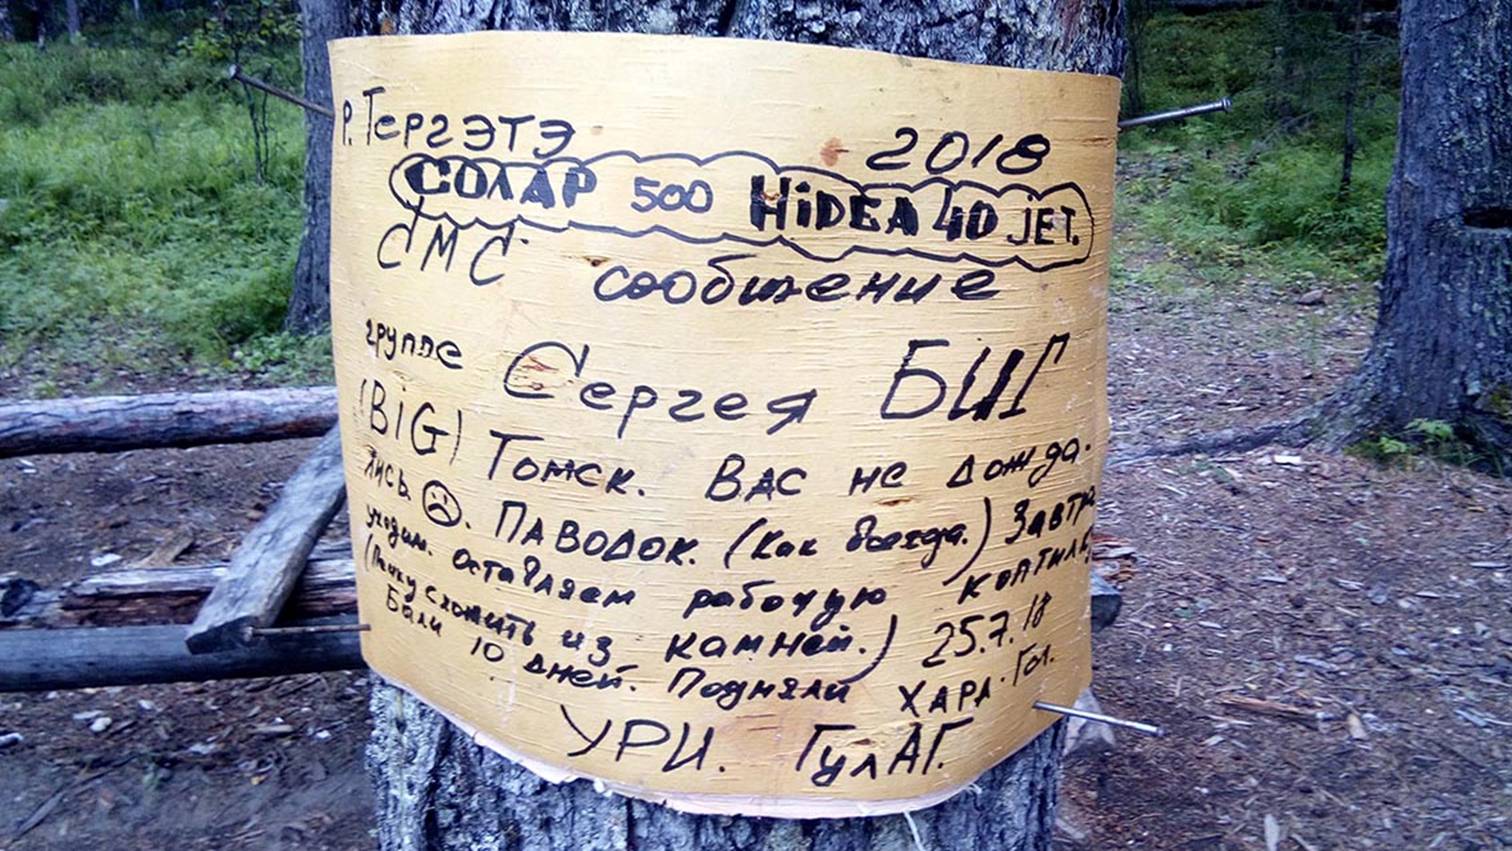 р. Тергэтэ 2018
СОЛАР 500 HiDEA 40 JET.
СМС сообщение
группе Сергея БИГ
(BiG) Томск. ВАС не дожда-
лись. ПАВОДОК. (Как всегда.) Завтра
уходим. Оставляем рабочую коптилку
(Печку сложить из камней.) 25.7.18
Были 10 дней. Подняли ХАРА-Гол.
УРИ. ГулАГ.